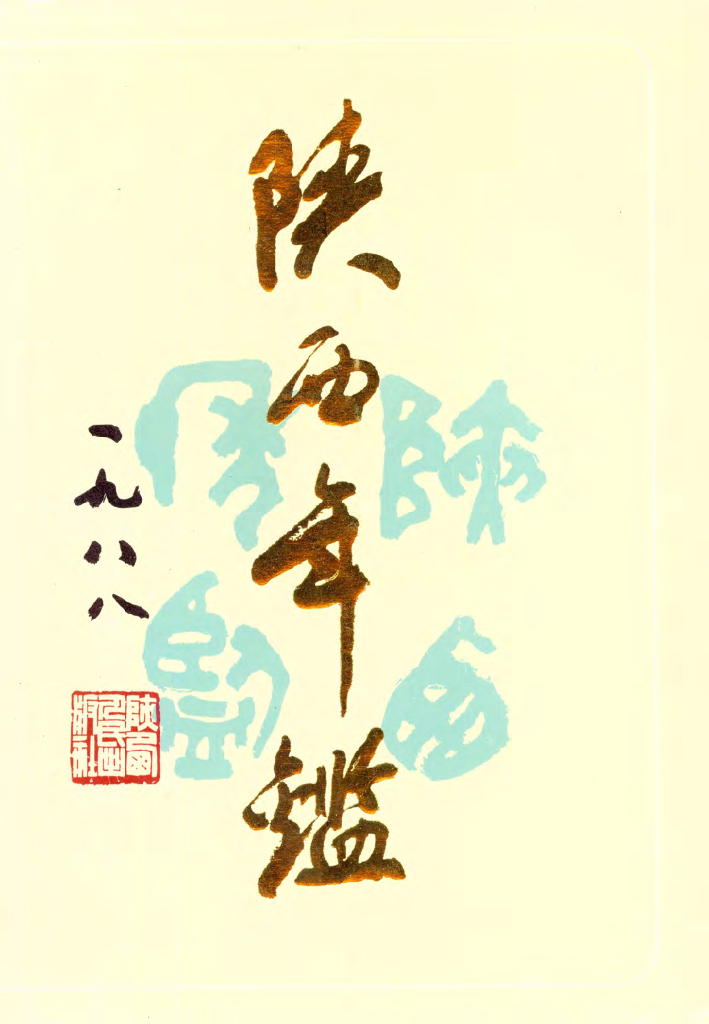 陕西年鉴
一九八八
陕西
年鉴
陕西
人民出
版社